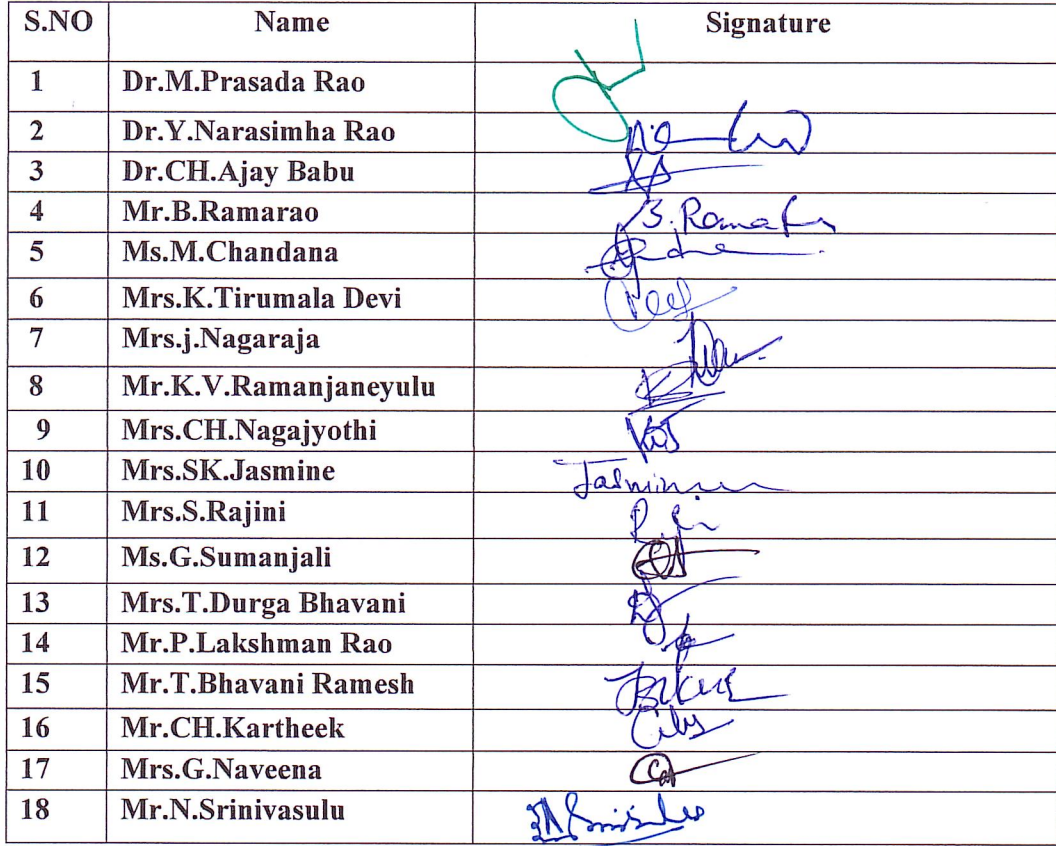 S.NO Name Signature
1 Dr.M.Prasada Rao
2 Dr.Y.Narasimha Rao
3 Dr.CH.Ajay Babu
4 Mr.B.Ramarao B.Ramarao
5 Ms.M.Chandana
6 Mrs.K.Tirumala Devi
7 Mrs.j.Nagaraja
8 Mr.K.V.Ramanjaneyulu
9 Mrs.CH.Nagajyothi
10 Mrs.SK.Jasmine Jasmine
11 Mrs.S.Rajini
12 Ms.G.Sumanjali
13 Mrs.T.Durga Bhavani
14 Mr.P.Lakshman Rao
15 Mr.T.Bhavani Ramesh
16 Mr.CH.Kartheek
17 Mrs.G.Naveena
18 Mr.N.Srinivasulu